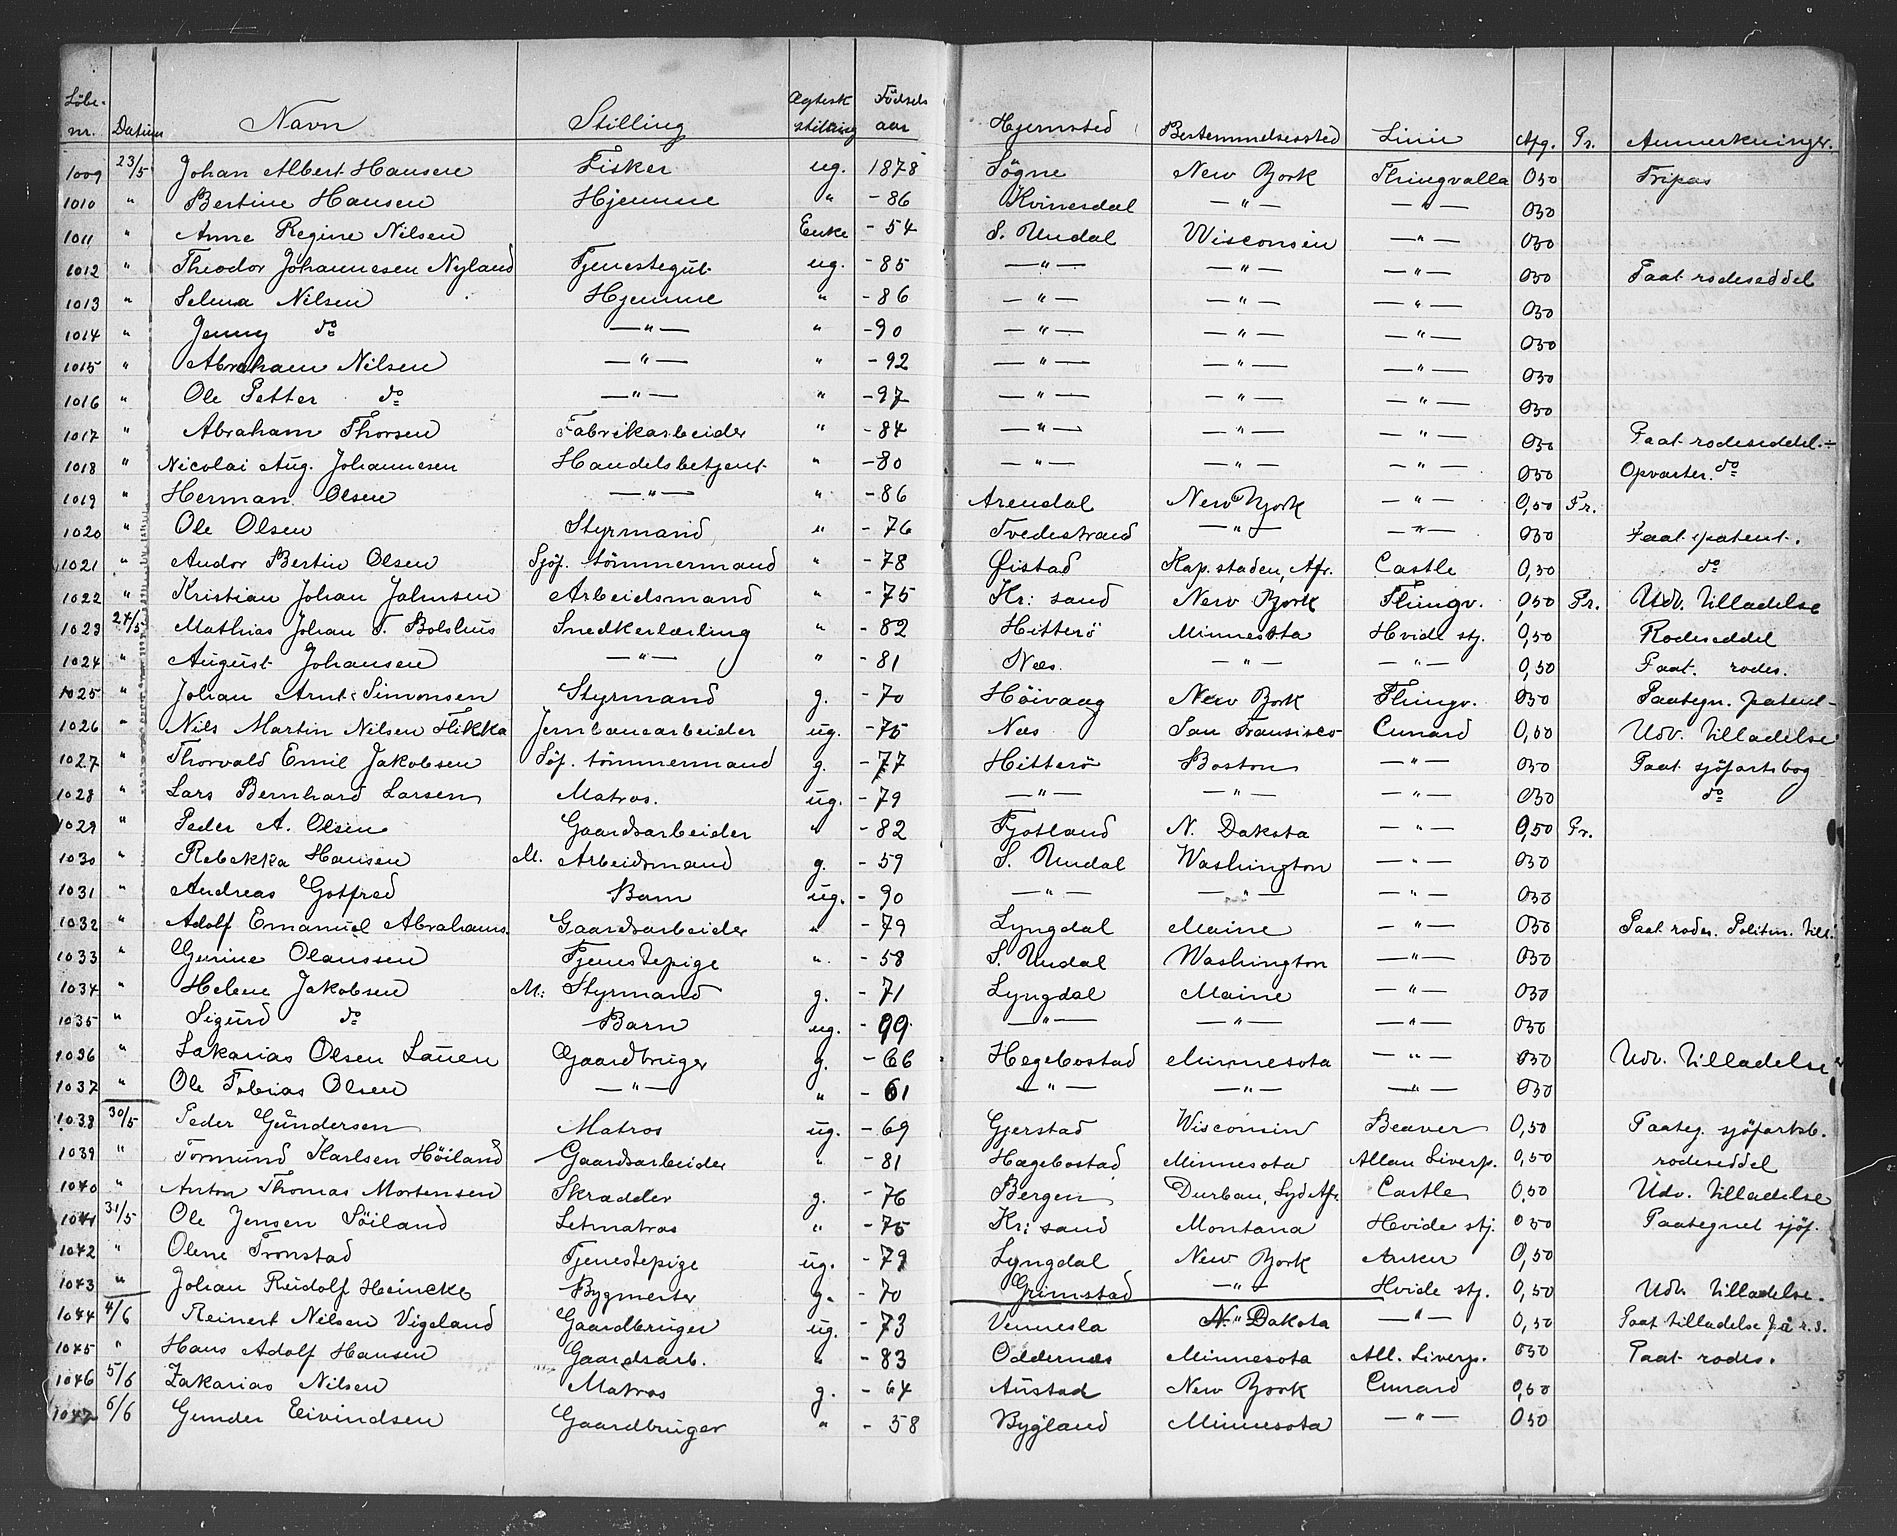 Löbe-nr. Datum Navn Stilling Ægtesk stilling Födsels aar Hjemsted Bestemmelsessted Linie Afg. Pr. Anmerkninger.
1009 23/5 Johan Albert Hansen Fisker ug. 1878 Søgne New York Thingvalla 050 Fripas
1010 " Bertine Hansen Hjemme " -86 Kvinesdal —"— —"— 050
1011 " Anne Regine Nilsen Enke -54 S. Undal Wisconsin —"— 050
1012 " Theodor Johannesen Nyland Tjenestegut ug. -85 —"— —"— —"— 050 Paat rodeseddel
1013 " Selma Nilsen Hjemme " -86 —"— —"— —"— 050
1014 " Jenny do —"— " -90 —"— —"— —"— 050
1015 " Abraham Nilsen —"— " -92 —"— —"— —"— 050
1016 " Ole Petter do —"— " -97 —"— —"— —"— 050
1017 " Abraham Thorsen Fabrikarbeider " -84 —"— —"— —"— 050 Paat rodeseddel.
1018 " Nicolai Aug. Johannesen Handelsbetjent " -80 —"— —"— —"— 050 Opvarter. do
1019 " Herman Olsen —"— " -86 Arendal New York —"— 0,50 Fr.
1020 " Ole Olsen Styrmand " -76 Tvedestrand —"— —"— 050 Paat patent.
1021 " Andor Bertin Olsen Sjöf. tömmermand " -78 Øistad Kapstaden, Afr. Castle 0,50 do
1022 " Kristian Johan Johnsen Arbeidsmand " -75 Kr: sand New York Thingv. 050 Pr. Udv. tilladelse
1023 24/5 Mathias Johan T. Bolshus Snedkerlærling " -82 Hitterö Minnesota Hvide stj. 0,50 Rodeseddel
1024 " August Johansen —"— " -81 Næs. —"— —"— 0,50 Paat. rodes.
1025 " Johan Arnt Simonsen Styrmand g. -70 Höivaag New York Thingv. 050 Paategn. patent
1026 " Nils Martin Nilsen Flikka Jernbanearbeider ug. -75 Næs San Fransisco Cunard 0,50 Udv. tilladelse
1027 " Thorvald Emil Jakobsen Söf. tömmermand g. -77 Hitterö Boston —"— 050 Paat sjöfartsbog
1028 " Lars Bernhard Larsen Matros. ug. -79 —"— —"— —"— 050 do
1029 " Peder A. Olsen Gaardsarbeider " -82 Fjotland N. Dakota —"— 0,50 Pr.
1030 " Rebekka Hansen M. Arbeidsmand g. -59 S. Undal Washington —"— 050
1031 " Andreas Gotfred Barn ug. -90 —"— —"— —"— 050
1032 " Adolf Emanuel Abrahams. Gaardsarbeider " -79 Lyngdal Maine —"— 050 Paat rodes. Politim. till.
1033 " Gurine Olaussen Tjenestepige " -58 S. Undal Washington —"— 050
1034 " Helene Jakobsen M: Styrmand g. -71 Lyngdal Maine —"— 050
1035 " Sigurd do Barn ug. -99 —"— —"— —"— 050
1036 " Sakarias Olsen Lauen Gaardbruger g. -66 Hegebostad Minnesota —"— 050 Udv. tilladelse
1037 " Ole Tobias Olsen —"— " -61 —"— —"— —"— 050
1038 30/5 Peder Gundersen Matros ug. -69 Gjerstad Wisconsin Beaver 0,50 Paateg. sjöfartsb.
1039 " Tormund Karlsen Höiland Gaardsarbeider " -81 Hægebostad Minnesota Allan Liverp. 0,50 rodeseddel
1040 " Anton Thomas Mortensen Skrædder g. -76 Bergen Durban, Syd Afr. Castle 0,50 Udv. tilladelse
1041 31/5 Ole Jensen Söiland Letmatros " -75 Kr: sand Montana Hvide stj. 050 Paategnet sjöf.
1042 " Olene Tronstad Tjenestepige ug. -79 Lyngdal New York Anker 0,50
1043 " Johan Rudolf Heincke Bygmester g. -70 Grimstad —"— Hvide stj. 0,50 Udv. tilladelse.
1044 4/6 Reinert Nilsen Vigeland Gaardbruger ug. -73 Vennesla N. Dakota —"— 0,50 Paat tilladelse
1045 " Hans Adolf Hansen Gaardsarb. " -83 Oddernæs Minnesota All. Liverp. 050 Paat rodes.
1046 5/6 Zakarias Nilsen Matros g. -64 Austad New York Cunard 0,50
1047 6/6 Gunder Eivindsen Gaardbruger " -58 Bygland Minnesota —"— 050